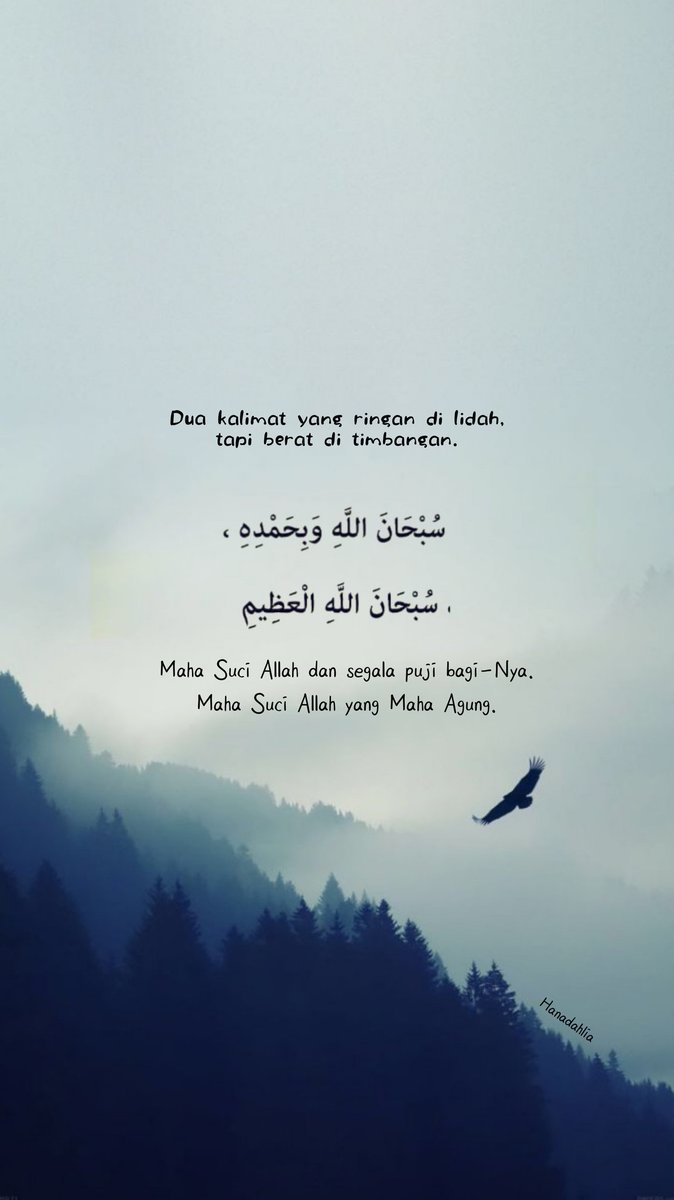 Dua kalimat yang ringan di lidah,
tapi berat di timbangan.
سُبْحَانَ اللَّهِ وَبِحَمْدِهِ ،
، سُبْحَانَ اللَّهِ الْعَظِيمِ
Maha Suci Allah dan segala puji bagi-Nya.
Maha Suci Allah yang Maha Agung.
Hanadahlia